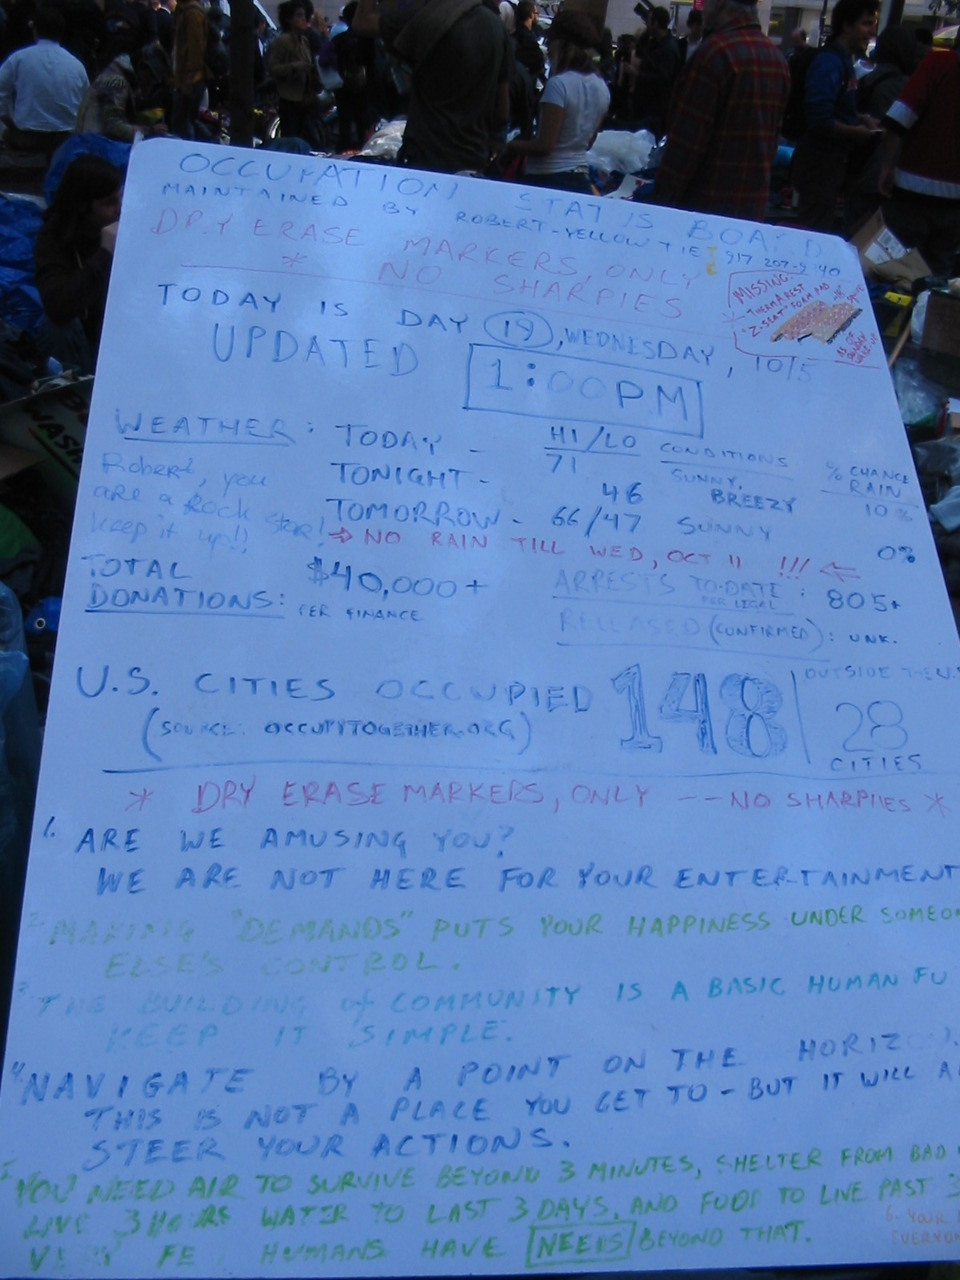 OCCUPATION STATIS BOARD
MAINTAINED BY ROBERT-YELLOW TIE 917 207-9 40
DRY ERASE MARKERS, ONLY
* NO SHARPIES
* MISSING:
THERMAREST
"Z-SEAT" FOAM PAD
AS OF
SUNDAY
TODAY IS DAY 19, WEDNESDAY, 10/5
UPDATED 1:00PM
WEATHER: TODAY - HI/LO CONDITIONS % CHANCE RAIN
71 SUNNY, BREEZY 10%
TONIGHT - 46
TOMORROW - 66/47 SUNNY 0%
Robert, you
are a Rock Star!
keep it up!!
→ NO RAIN TILL WED, OCT 11 !!! ←
TOTAL
DONATIONS: $40,000+
PER FINANCE
ARRESTS TO-DATE: 805+
PER LEGAL
RELEASED (CONFIRMED): UNK.
U.S. CITIES OCCUPIED 148
(SOURCE: OCCUPYTOGETHER.ORG)
OUTSIDE THE U.S.
28
CITIES
* DRY ERASE MARKERS, ONLY -- NO SHARPIES *
1. ARE WE AMUSING YOU?
WE ARE NOT HERE FOR YOUR ENTERTAINMENT
2. MAKING "DEMANDS" PUTS YOUR HAPPINESS UNDER SOMEON
ELSE'S CONTROL.
3. THE BUILDING of COMMUNITY IS A BASIC HUMAN FU
KEEP IT SIMPLE.
4. NAVIGATE BY A POINT ON THE HORIZON.
THIS IS NOT A PLACE YOU GET TO - BUT IT WILL A
STEER YOUR ACTIONS.
5. YOU NEED AIR TO SURVIVE BEYOND 3 MINUTES, SHELTER FROM BAD
LIVE 3 HOURS WATER TO LAST 3 DAYS, AND FOOD TO LIVE PAST 3
VERY FE HUMANS HAVE NEEDS BEYOND THAT.
6. YOUR
EVERYON